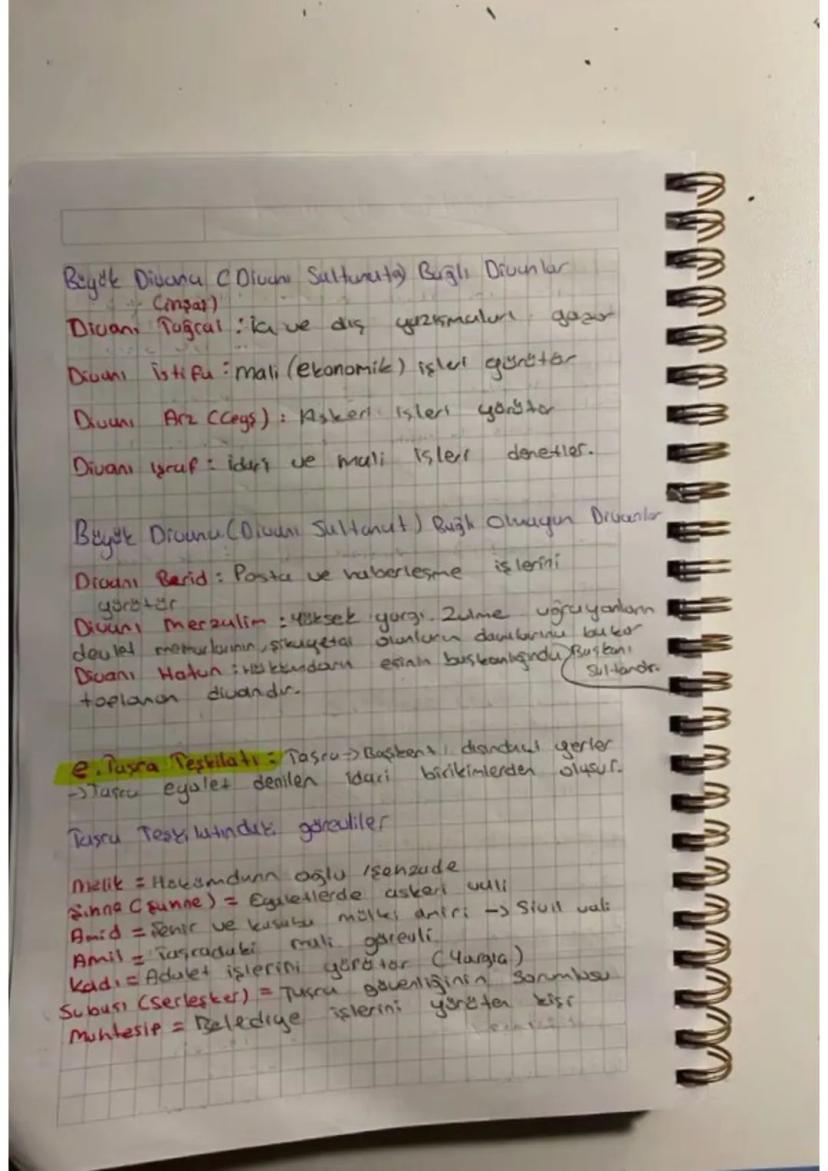 Büyük Divana (Divanı Saltanata) Bağlı Divanlar
(inşat)
Divanı Tuğral : iç ve dış yazışmaları yazar
Divanı istifa : mali (ekonomik) işleri yürütür
Divanı Arz (Ceyş) : Askeri işleri yürütür
Divanı işraf : idari ve mali işleri denetler.
Büyük Divana (Divanı Saltanat) Bağlı Olmayan Divanlar
Divanı Berid : Posta ve haberleşme işlerini
yürütür
Divanı Mezalim : Yüksek yargı. Zulme uğrayanların
devlet memurlarının, şikayetçi olanların davalarına bakar
Başkanı
Sultandır.
Divanı Hatun : Hükümdarın eşinin başkanlığında
toplanan divandır.
e. Taşra Teşkilatı : Taşra → Başkent dışındaki yerler
→ Taşra eyalet denilen idari birikimlerden oluşur.
Taşra Teşkilatındaki görevliler
Melik = Hükümdarın oğlu / Şehzade
Şinne (Şunne) = Eyaletlerde askeri vali
Amid = Şehir ve kasaba mülki amiri → Sivil vali
Amil = Taşradaki mali görevli
Kadı = Adalet işlerini yürütür (Yargıa)
Subaşı (Serleşker) = Taşra güvenliğinin sorumlusu
Muhtesip = Belediye işlerini yürüten kişi